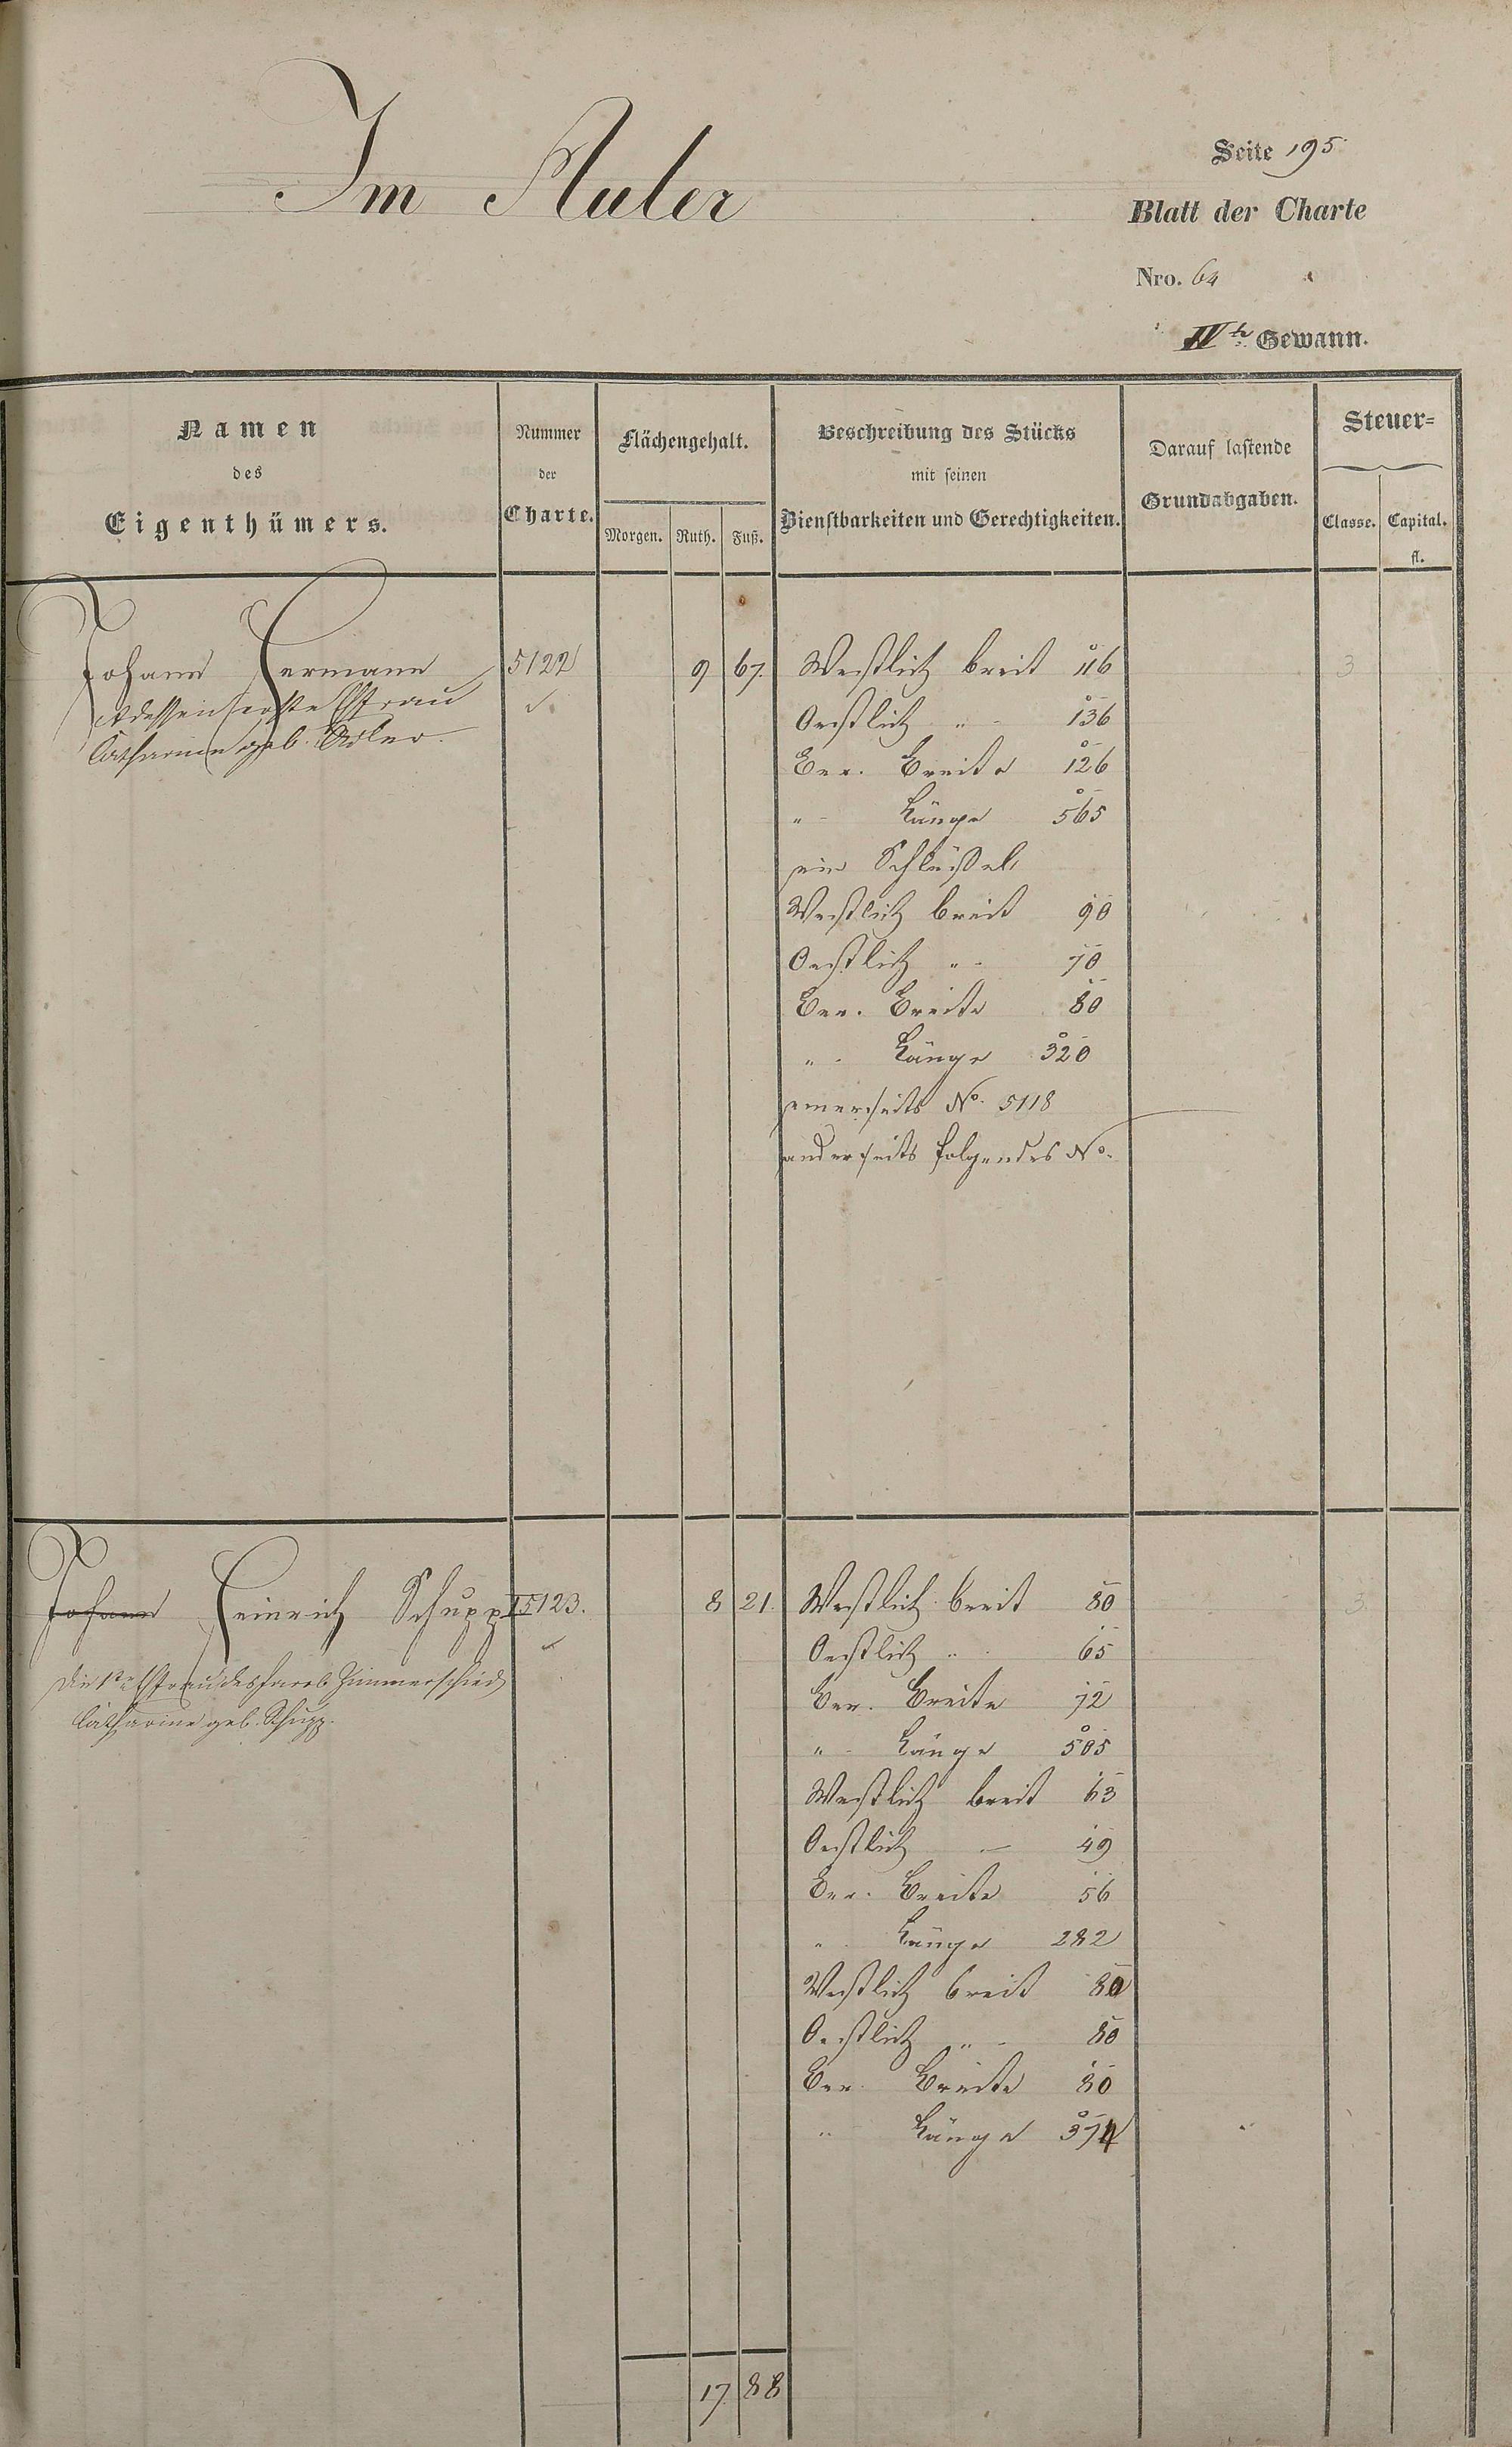 Im Auler
Seite 195
Blatt der Charte
Nro. 64
IVte Gewann.
Namen
des
Eigenthümers.
Nummer
der
Charte.
Flächengehalt.
Morgen. Ruth. Fuß.
Beschreibung des Stücks
mit seinen
Dienstbarkeiten und Gerechtigkeiten.
Darauf lastende
Grundabgaben.
Steuer=
Classe. Capital.
fl.
Johann Hermann
& dessen erste Efrau
Catharine geb. Adler.
5122
9 67.
Westlich breit 116
Oestlich " - 136
Ber. Breite 126
" - Länge 565
ein Schlüßel,
Westlich breit 90
Oestlich " - 70
Ber. Breite 80
" - Länge 320
einerseits No. 5118
anderseits folgendes No.
3
Johann Heinrich Schupp I
die 1te Efrau des Jacob Zimmerschied
Catharine geb. Schupp.
5123.
8 21.
Westlich breit 80
Oestlich " 65
Ber. Breite 72
" - Länge 505
Westlich breit 63
Oestlich — 49
Ber. Breite 56
" Länge 282
Westlich breit 80
Oestlich " - 80
Ber. Breite 80
" Länge 374
3.
17 88